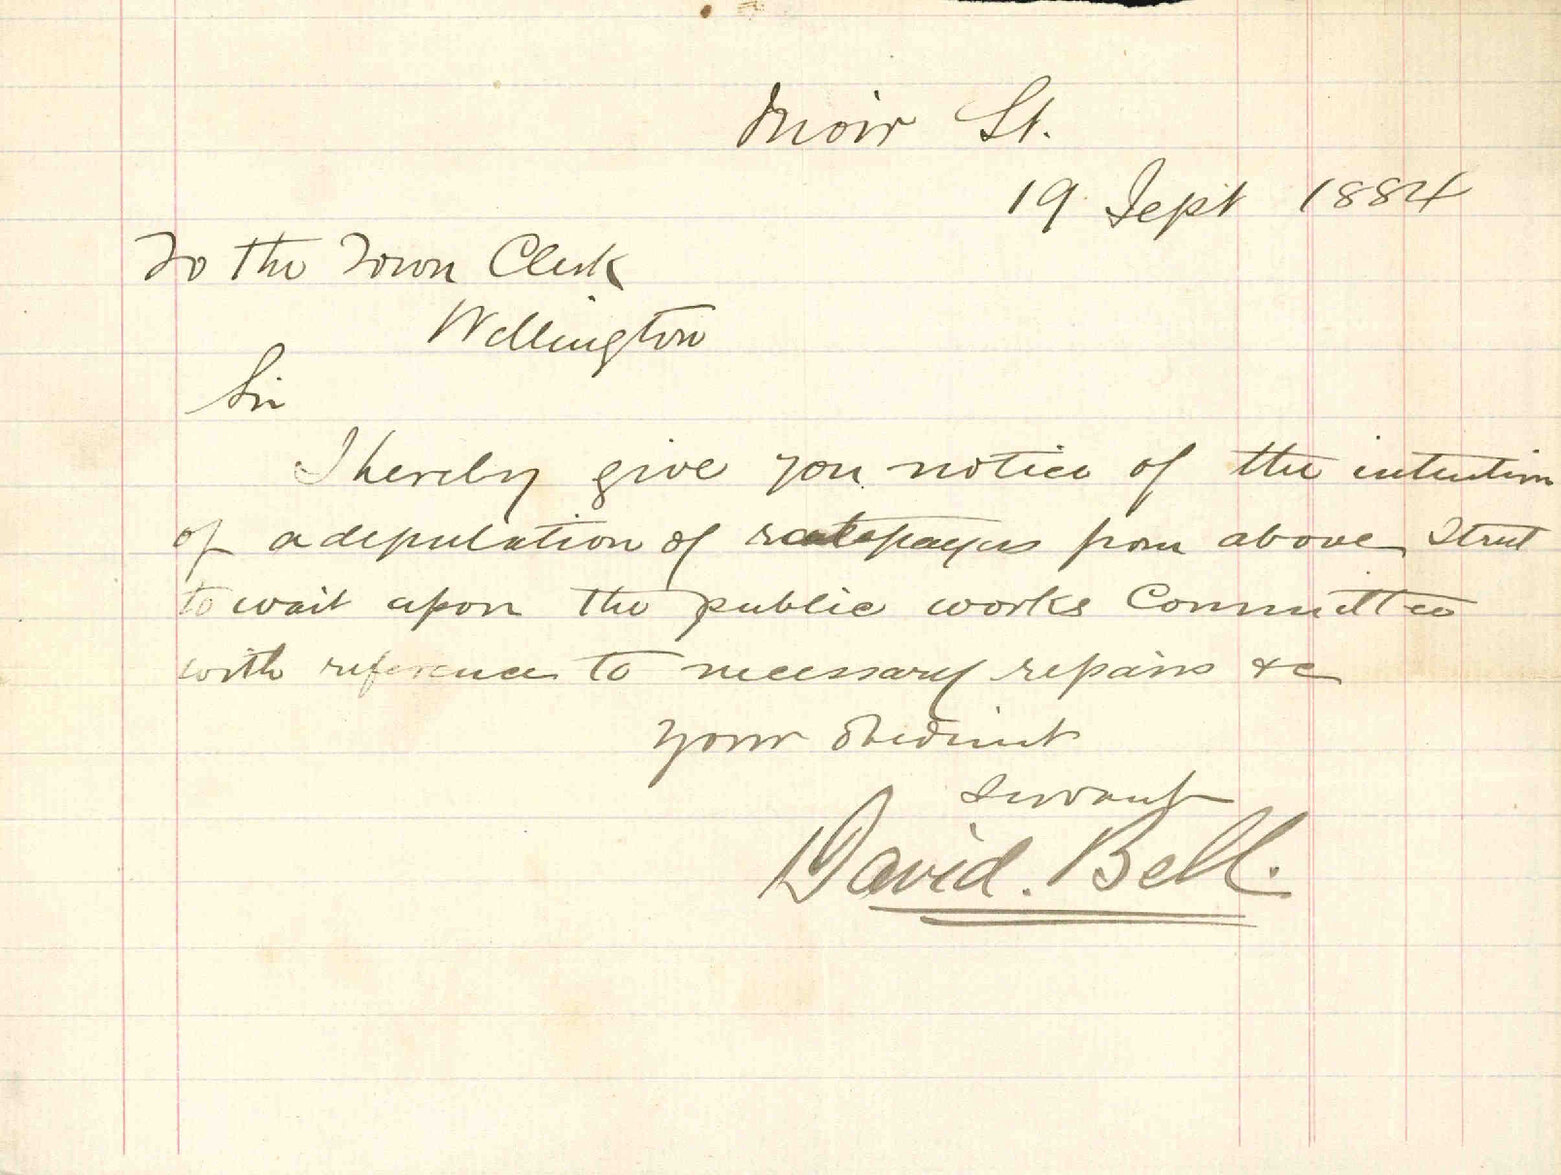 Moir St.
19 Sept 1884
To the Town Clerk
Wellington
Sir
I hereby give you notice of the intention
of a deputation of ratepayers from above Street
to wait upon the public works Committee
with reference to necessary repairs &c
Your obedient
servant
David. Bell.